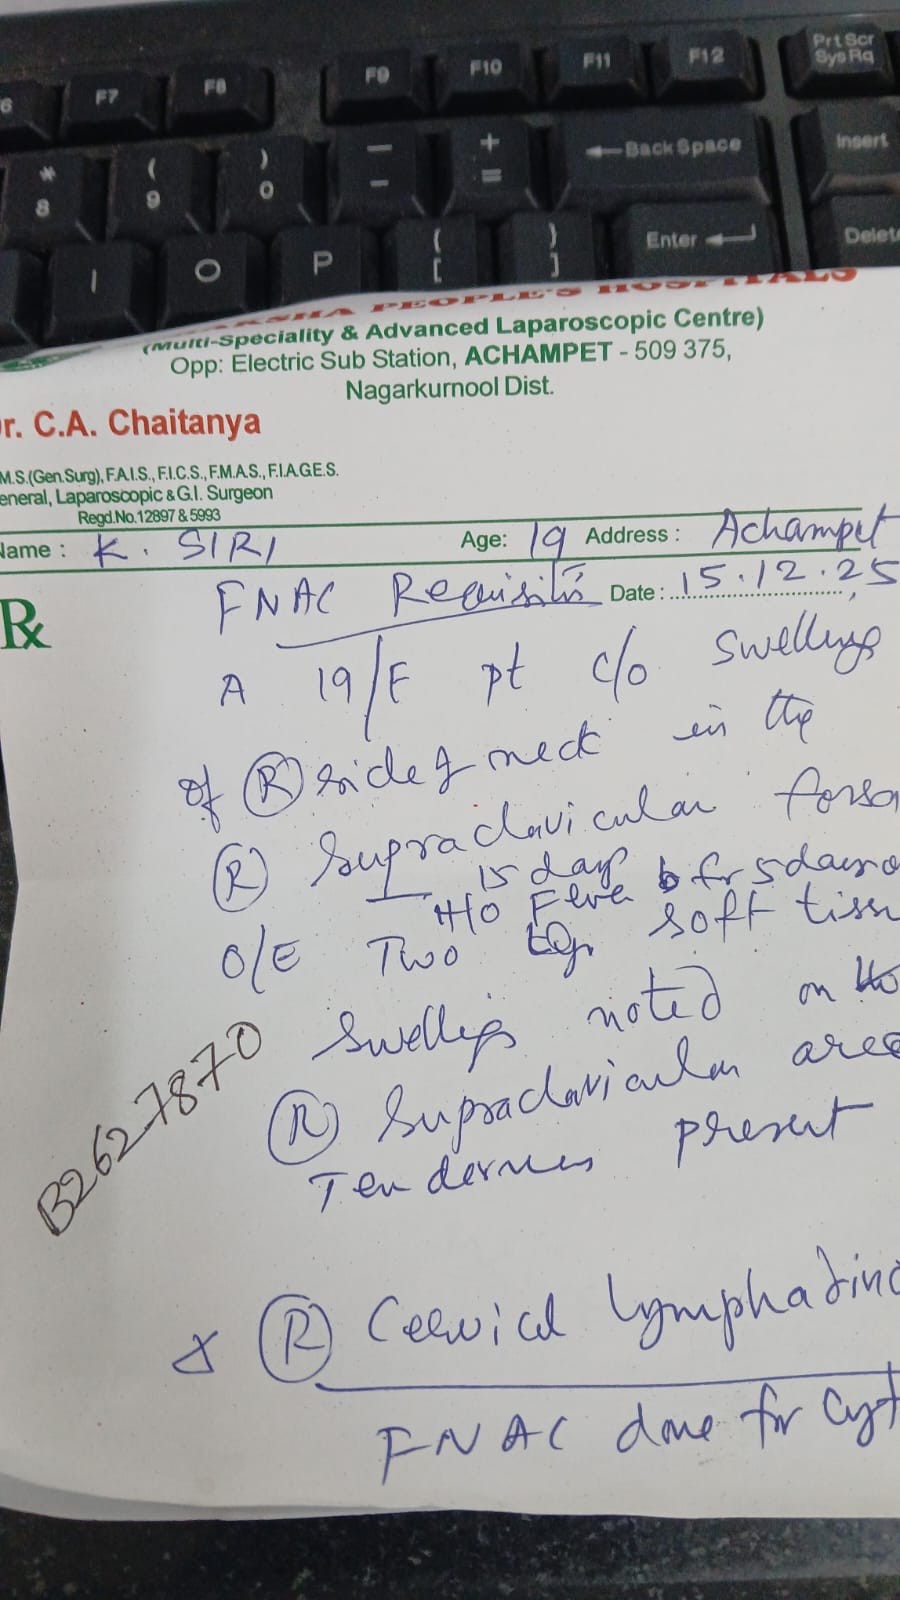 F7
F8
F9
F10
F11
F12
PrtScr
SysRq
6
*
8
(
9
)
0
—
–
+
=
←BackSpace
Insert
I
O
P
{
[
}
]
Enter
Delete
PEOPLE'S HOSPITALS
(Multi-Speciality & Advanced Laparoscopic Centre)
Opp: Electric Sub Station, ACHAMPET - 509 375,
Nagarkurnool Dist.
Dr. C.A. Chaitanya
M.S.(Gen.Surg), F.A.I.S., F.I.C.S., F.M.A.S., F.I.A.G.E.S.
General, Laparoscopic & G.I. Surgeon
Regd.No.12897 & 5993
Name : K. SIRI Age: 19 Address : Achampet
Rx FNAC Requisitn Date : 15.12.25
A 19/F pt c/o swellings
of (R) side of neck in the
(R) Supraclavicular fossa
15 days
H/O Fever for 5 days
O/E Two soft tissu
Swellings noted on
(R) Supraclavicular area
Tenderness present
B2627870
(R) Cervical lymphadin
FNAC done for Cyt